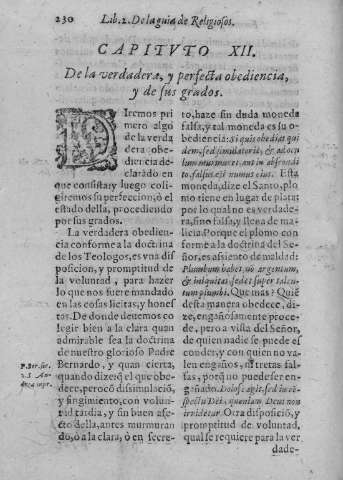 230 Lib. 2. De la guia de Religiosos.
CAPITVTO XII.
De la verdadera, y perfecta obediencia,
y de sus grados.
DIremos pri
mero algo
de la verda
dera obe-
diencia de-
clarãdo en
que consista, y luego coli-
giremos su perfeccion, ó el
estado della, procediendo
por sus grados.
La verdadera obedien-
cia conforme a la doctrina
de los Teologos, es vna dis
posicion, y promptitud de
la voluntad, para hazer
lo que nos fuere mandado
en las cosas licitas, y hones
tas. De donde deuemos co
legir bien a la clara quan
admirable sea la doctrina
de nuestro glorioso Padre
Bernardo, y quan cierta,
quando dize: el que obe-
dece, pero cõ dissimulació,
y fingimiento, con volun-
tad tardia, y sin buen afe-
cto della, antes murmuran
do, ó a la clara, ó en secre-
P. Ber. ser.
to, haze sin duda moneda
falsa, y tal moneda es su o-
bediencia: si quis obedias qui
dem, sed simulatoriè, & aut in abscondito,
falsus est nummus eius. Esta
moneda, dize el Santo, plo
mo tiene en lugar de plata:
por lo qual no es verdade-
ra, sino falsa, y llena de ma-
licia: Porque el plomo con
forme a la doctrina del Se-
ñor, es assiento de maldad:
Plumbum habet, nõ argentum,
& iniquitas sedet super talen-
tum plumbi. Que mas? Quiẽ
desta manera obedece, di-
ze, engañosamente proce-
de, pero a vista del Señor,
de quien nadie se puede es
conder, y con quien no va-
len engaños, ni tretas fal-
sas, porque no puede ser en-
gañado: Dolosè agit, sed in cõ-
spectu Dei, quoniam Deus non
irridetur. Otra disposició, y
promptitud de voluntad,
qual se requiere para la ver
dade-